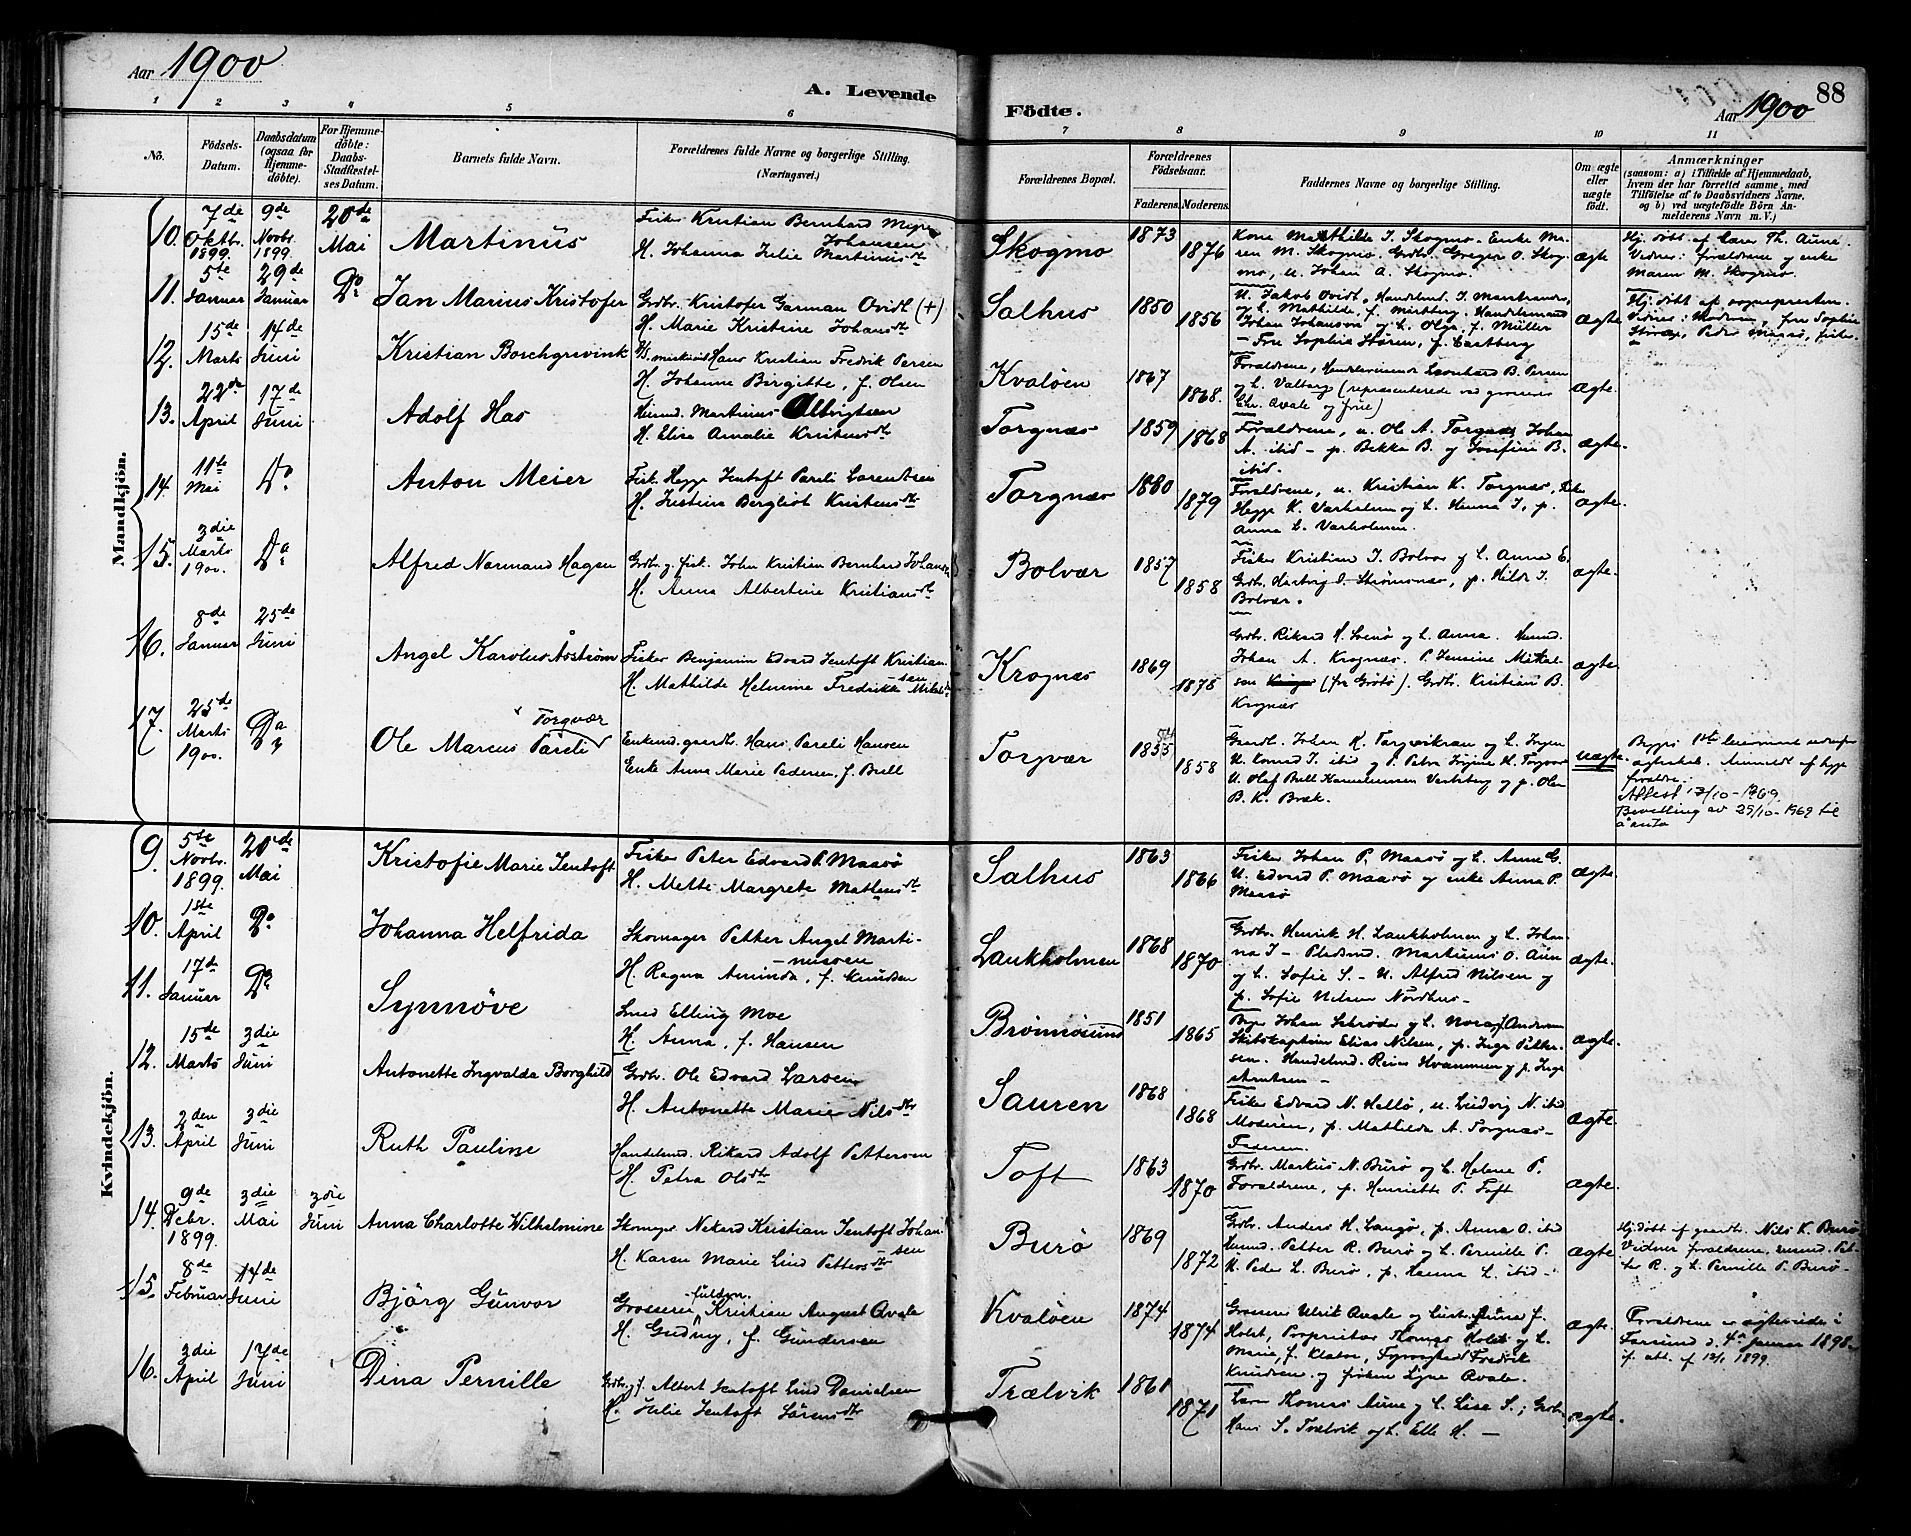 Aar 1900
A. Levende
Födte.
Aar 1900
88
1 2 3 4 5 6 7 8 9 10 11
Nö.
Födsels-Datum.
Daabsdatum (ogsaa for Hjemme-döbte).
For Hjemme-döbte: Daabs-Stadfæstel-ses Datum.
Barnets fulde Navn.
Forældrenes fulde Navne og borgerlige Stilling. (Næringsvei.)
Forældrenes Bopæl.
Forældrenes Födselsaar.
Faderens.
Moderens.
Faddernes Navne og borgerlige Stilling.
Om ægte eller uægte födt.
Anmærkninger (saasom: a) i Tilfælde af Hjemmedaab, hvem der har forrettet samme, med Tilföielse af to Daabsvidners Navne, og b) ved uægtefödte Börn An-melderens Navn m. V.)
Mandkjön.
10. 7de Oktbr. 1899. 9de Novbr. 1899. 20de Mai Martinus
Fisker Kristian Bernhard Meyer Johansen
H. Johanna Julie Martinusdtr
Skogmo 1873 1876
Kone Mathilde J. Skogmo. Enke Ma-
ren M. Skogmo. Grdbr. Greger O. Skog-
mo, u. Johan A. Skogmo.
ægte
Hj. döbt af Lærer Th. Aune
Vidner: forældrene og enke
Maren M. Skogmo.
11. 5te Januar 29de Januar Do Jan Marius Kristofer
Grdbr. Kristofer Garman Ovidt (+)
H. Marie Kristine Johansdtr
Salhus 1850 1856
U. Jakob Ovidt, Handelsmd. J.
og L. Mathilde, f.
Johan Johansen og L. Olga, f. Müller
- Fru Sophie Stören, f. Castberg
ægte
Hj. döbt af sognepresten.
Vidner: Moderen, fru Sophie
Stören, Peder Maasö, fisker.
12. 15de Marts 14de Juni Kristian Borchgrevink
Hans Kristian Fredrik Persen
H. Johanne Birgitte, f. Olsen
Kvalöen 1867 1868.
Forældrene, Leonhard B. Persen
og L. Valborg (representerede ved grosserer
Chr. Qvale og frue)
ægte.
13. 22de April 17de Juni Adolf Has
Huusmd. Martinus Albrigtsen
H. Elisa Amalie Kristensdtr
Torgnæs 1859 1868
Forældrene, u. Ole A. Torgnæs, Johan
A. ibid - p. Bekka B. og Josefine B.
ibid.
ægte.
14. 11te Mai Do Anton Meier
Fisk. Hegge Jentoft Pareli Larentsen
H. Justina Bergliot Kristensdtr
Torgnæs 1880 1879
Forældrene, u. Kristian K. Torgnæs, Fisker
Hegge K. Varholmen og L. Hanna J., p.
Anna L. Varholmen.
ægte.
15. 3die Marts 1900. Do Alfred Normand Hagen
Grdbr. og fisk. John Kristian Bernhard Johansen
H. Anna Albertine Kristiansdtr
Bolvær 1857 1858
Fisker Kristian J. Bolvær og L. Anna E.
Grdbr. Hartvig J. Strömsnæs, p. Hilda J.
Bolvær.
ægte.
16. 8de Januar 25de Juni Angel Karolus Åsström
Fisker Benjamin Edvard Jentoft Kristian-
sen
H. Mathilde Helmine Fredrikke
Krognæs 1869 1875
Grdbr. Rikard H. Lrenö og L. Anna. Huusmd.
Johan A. Krognæs. P. Jensine Mikal-
sen (fra Grötö). Grdbr. Kristian B.
Krognæs
ægte.
17. 25de Marts 1900. Do Ole Marcus Pareli Torgvær
Enkemd. gaardbr. Hans Pareli Hansen
Enke Anna Marie Pedersen, f. Bull
Torgvær 1855 1858
Gaardbr. Johan K. Torgvikran og L. Inger
U. Konrad J. ibid og P. Petra H. Torgvær
U. Olaf Bull Varholmen og p. Olea
B. K. Bræk.
uægte.
Attest 13/10-1969.
Bevilling av 29/10-1969 til
å anta
Kvindekjön.
9. 5te Novbr. 1899. 20de Mai Kristofie Marie Jentoft
Fisker Peter Edvard P. Maasö
H. Mette Margrete Mathiasdtr
Salhus 1863 1866
Fisker Johan P. Maasö og L. Anne G.
U. Edvard P. Maasö og enke Anna P.
Maasö
ægte.
10. 1ste April Do Johanna Helfrida
Skomager Petter Angel Marti-
nussen
H. Ragna Aminda, f. Knudsen
Laukholmen 1868 1870
Grdbr. Henrik H. Laukholmen og L. Johan-
na J - Pladsmd. Martinus O. Aune
og L. Sofie S. - U. Alfred Nilsen og
p. Sofie Nilsen Nordhus -
ægte.
11. 17de Januar Do Synnöve
Smed Elling Moe
H. Anna, f. Hansen
Brönnösund 1851 1865
Johan Schröder og L. Nora, f. Andersen
Skibskaptein Elias Nilsen, p. Inga Petter-
sen. Handelsmd. Reier Hvammen og p. Inga
Arntsen -
ægte.
12. 15de Marts 3die Juni Antonette Ingvalda Borghild
Grdbr. Ole Edvard Larsen
H. Antonette Marie Nilsdtr
Sauren 1868 1868
Fisker Edvard N. Hellö, u. Ludvig N. ibid
Moderen, p. Mathilde A. Torgnæs -
Faderen.
ægte.
13. 2den April 3die Juni Ruth Pauline
Handelsmd. Rikard Adolf Pettersen
H. Petra Olsdtr
Toft 1863 1870
Grdbr. Markus N. Burö og L. Helene P.
Forældrene, p. Henriette P. Toft
ægte.
14. 9de Debr. 1899. 3die Mai 3die Juni Anna Charlotte Wilhelmine
Skomager Nekard Kristian Jentoft Johan-
sen
H. Karen Marie Lind Pettersdtr
Burö 1869 1872
Grdbr. Anders H. Langö, p. Anna O. ibid
Huusmd. Petter R. Burö og L. Pernille P.
U. Peder L. Burö, p. Hanna L. ibid -
ægte.
Hj. döbt af gaardbr. Nils K. Burö
Vidner forældrene, huusmd. Pet-
ter R. og L. Pernille P. Burö -
15. 8de Februar 14de Juni Björg Gunvor
Grosserer Kristian August Qvale
H. Gudny, f. Gundersen
Kvalöen 1874 1874
Grosserer Ulrik Qvale og Anna f.
Holst, Proprietær Thomas Holst og L.
Marie, f. Klaboe, Fyrvogter Fredrik
Knudsen og fröken Signe Qvale.
ægte.
Forældrene er ægteviede i
Farsund d. 4de Januar 1898 -
if. att. af 12/1 1899.
16. 3die April 17de Juni Dina Pernille
Grdbr. og f. Albert Jentoft Lind Danielsen
H. Julie Jentoft Sörensdtr
Trælvik 1861 1871
Lærer Thomas Aune og L. Lise S.; Grdbr.
Hans S. Trælvik og L. Elle H. -
ægte.